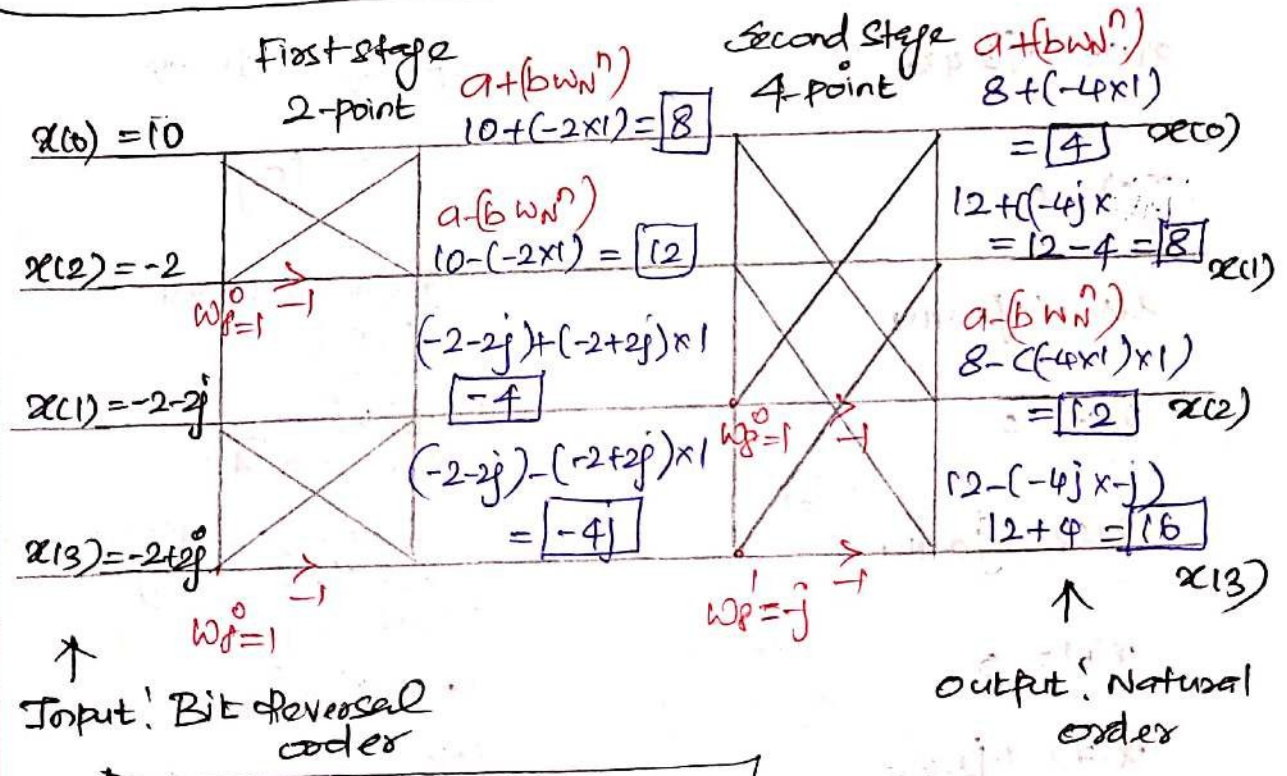 First stage
2-point
a+(bwNⁿ)
10+(-2×1)=8
Second stage
4-point
a+(bwNⁿ)
8+(-4×1)
=4 x(0)
x(0)=10
a-(bwNⁿ)
10-(-2×1)=12
12+((-4j×
=12-4=8
x(1)
x(2)=-2
w8⁰=1 -1
(-2-2j)+(-2+2j)×1
-4
a-(bwNⁿ)
8-((-4×1)×1)
=12 x(2)
x(1)=-2-2j
w8⁰=1 -1
(-2-2j)-(-2+2j)×1
=-4j
12-(-4j×-j)
12+4=16
x(3)
x(3)=-2+2j
w8⁰=1 -1
w8¹=-j -1
↑
Input: Bit Reversal
order
↑
output: Natural
order